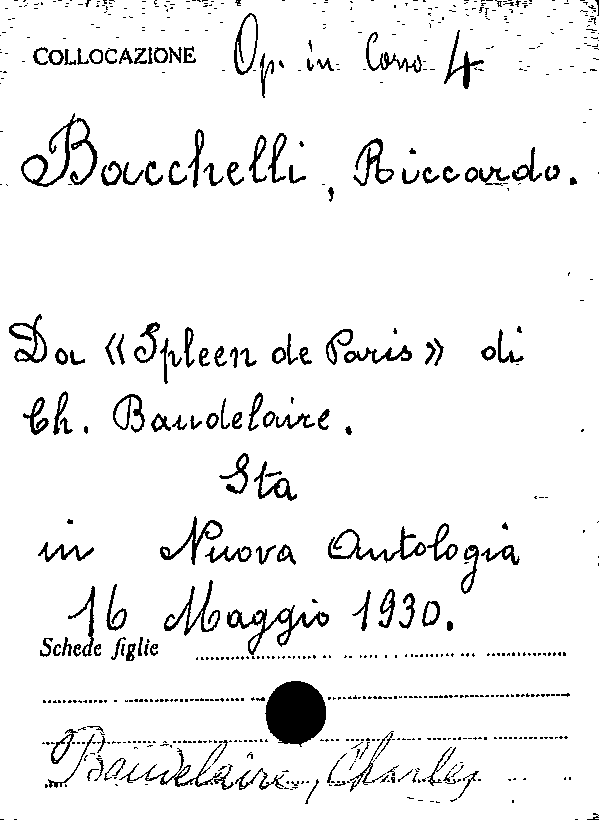 COLLOCAZIONE Op. in Corso 4
Bacchelli, Riccardo.
Da «Spleen de Paris» di
Ch. Baudelaire.
Sta
in Nuova Antologia
16 Maggio 1930.
Schede figlie
Baudelaire, Charles